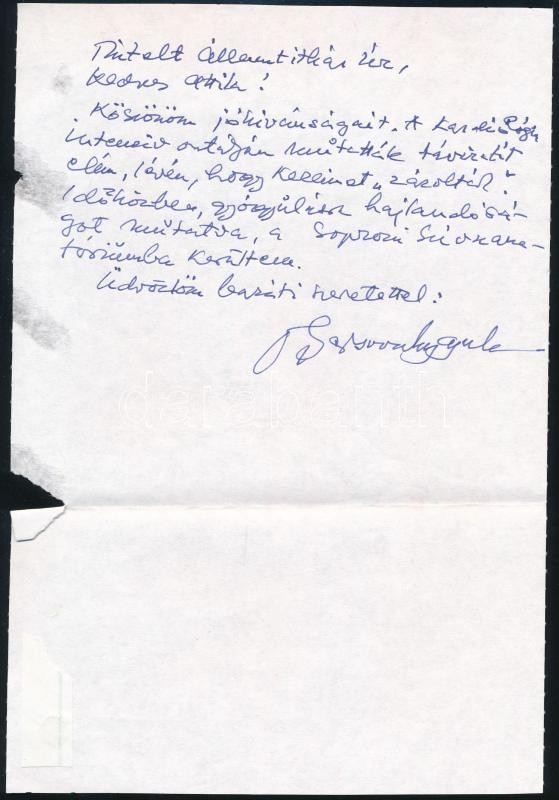 Tisztelt Államtitkár Úr,
Kedves Attila!
Köszönöm jókívánságait. A Kardiológia
intenzív osztályán mutatták táviratát
elém, lévén, hogy kezeimet „zárolták".
Időközben, gyógyulásra hajlandósá-
got mutatva, a Soproni Szívszana-
tóriumba kerültem.
Üdvözlöm baráti szeretettel:
Gyula
darabanth